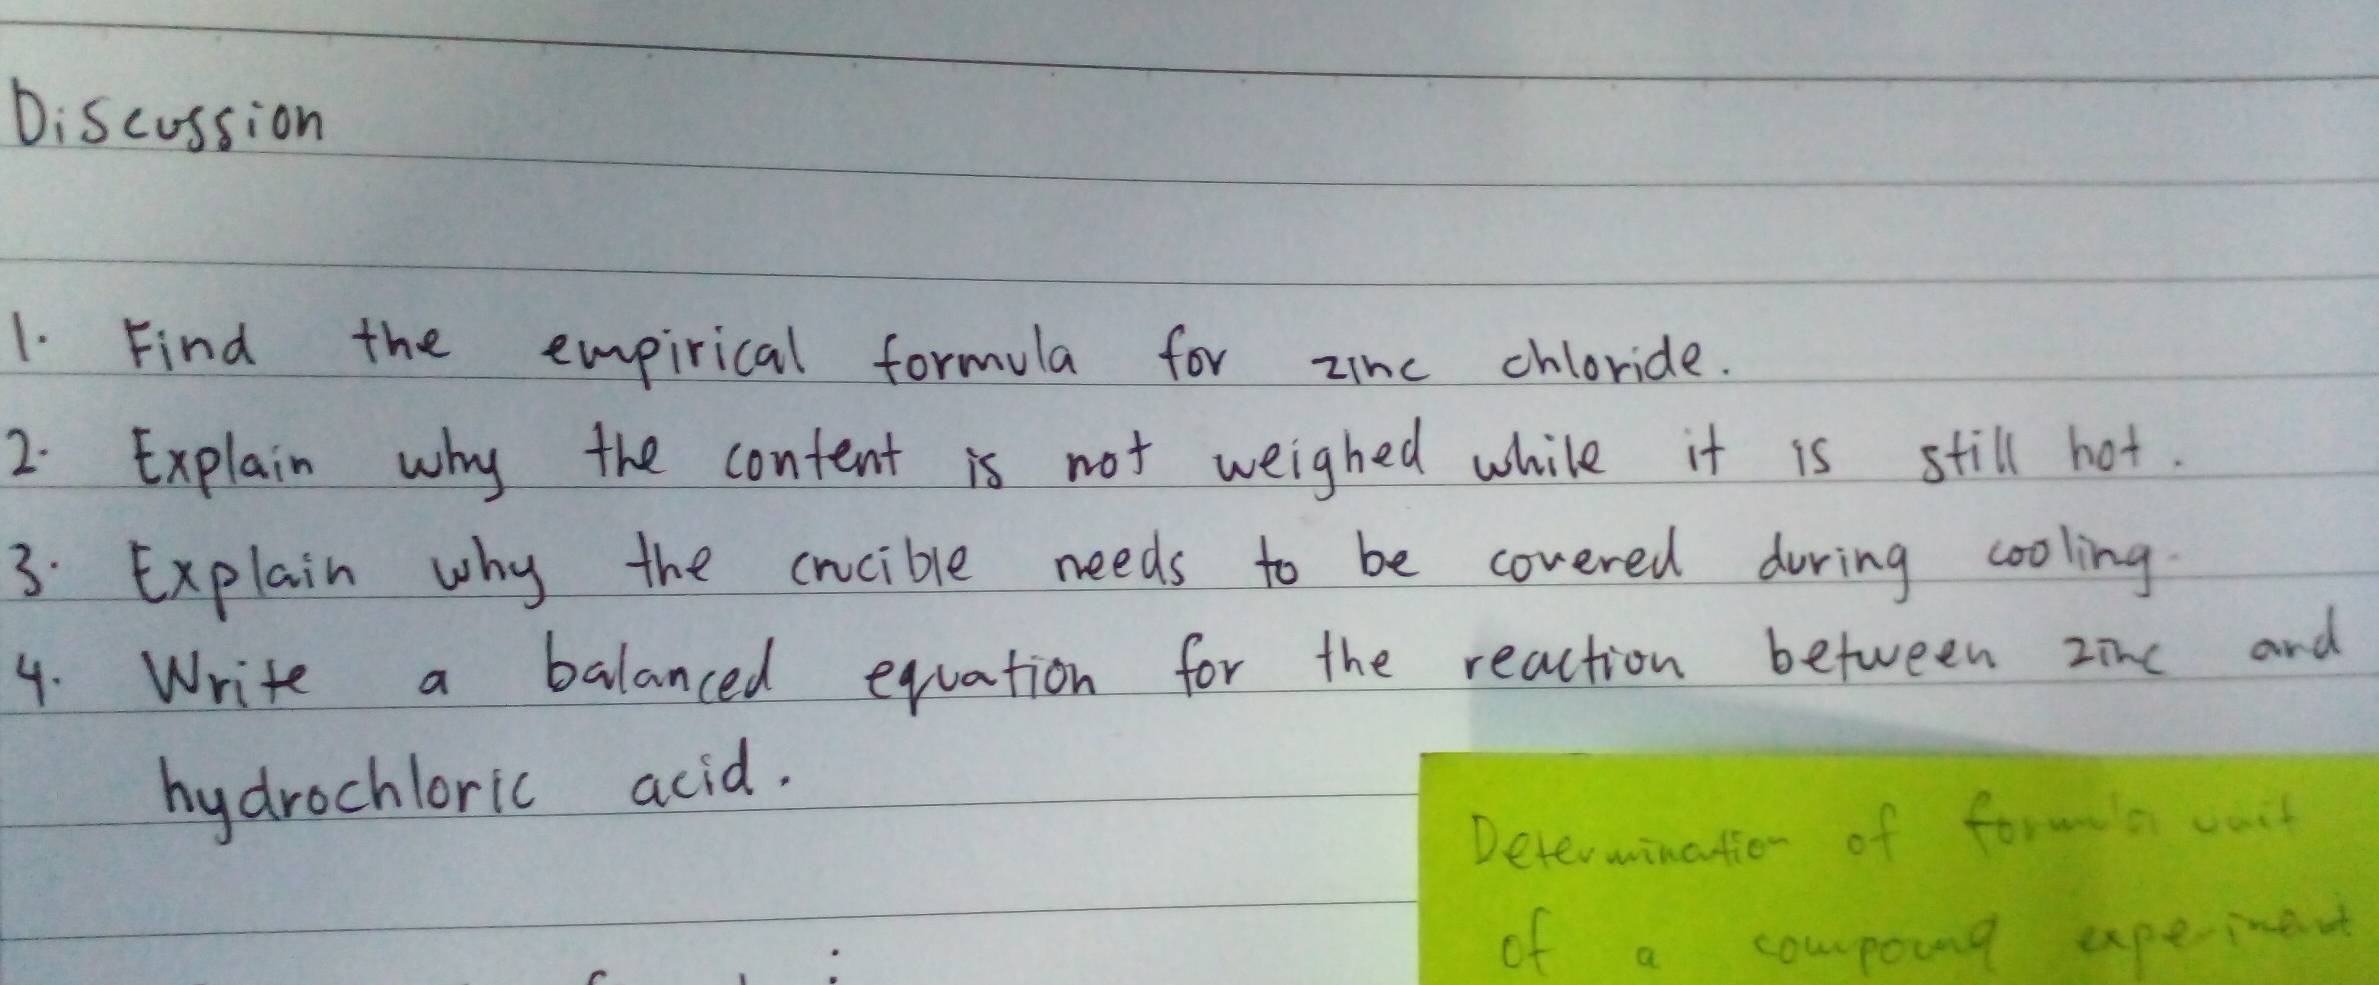 Discussion
1. Find the empirical formula for zinc chloride.
2. Explain why the content is not weighed while it is still hot.
3. Explain why the crucible needs to be covered during cooling.
4. Write a balanced equation for the reaction between zinc and
hydrochloric acid.
Determination of formula unit
of a compound experiment